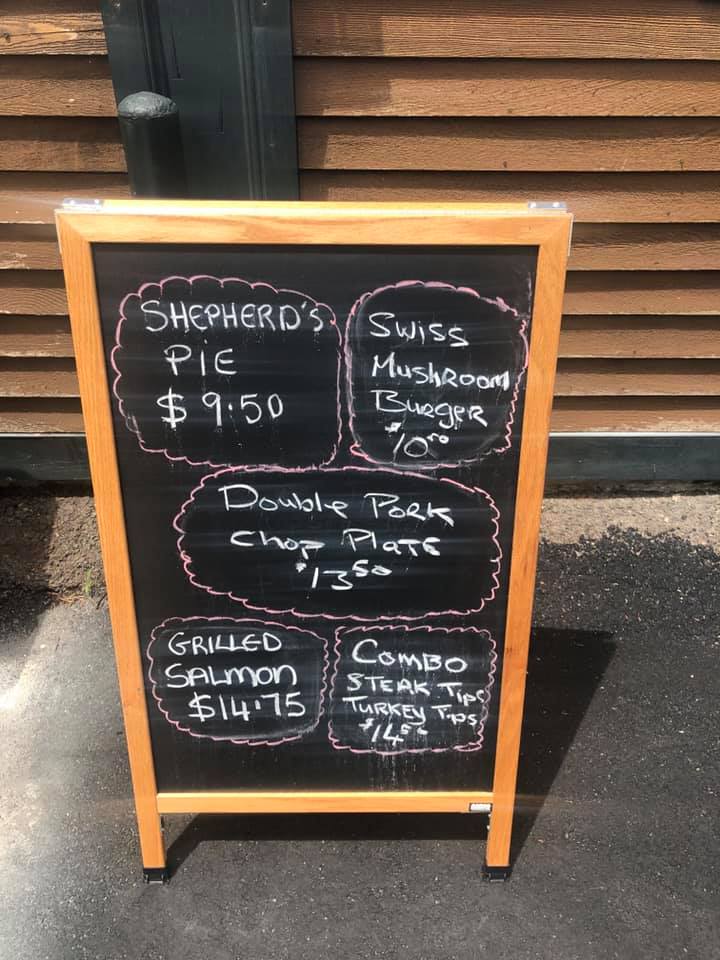 SHEPHERD'S
PIE
$9.50
Swiss
Mushroom
Burger
$10.00
Double Pork
Chop Plate
$13.50
GRILLED
SALMON
$14.75
COMBO
STEAK Tips
TURKEY Tips